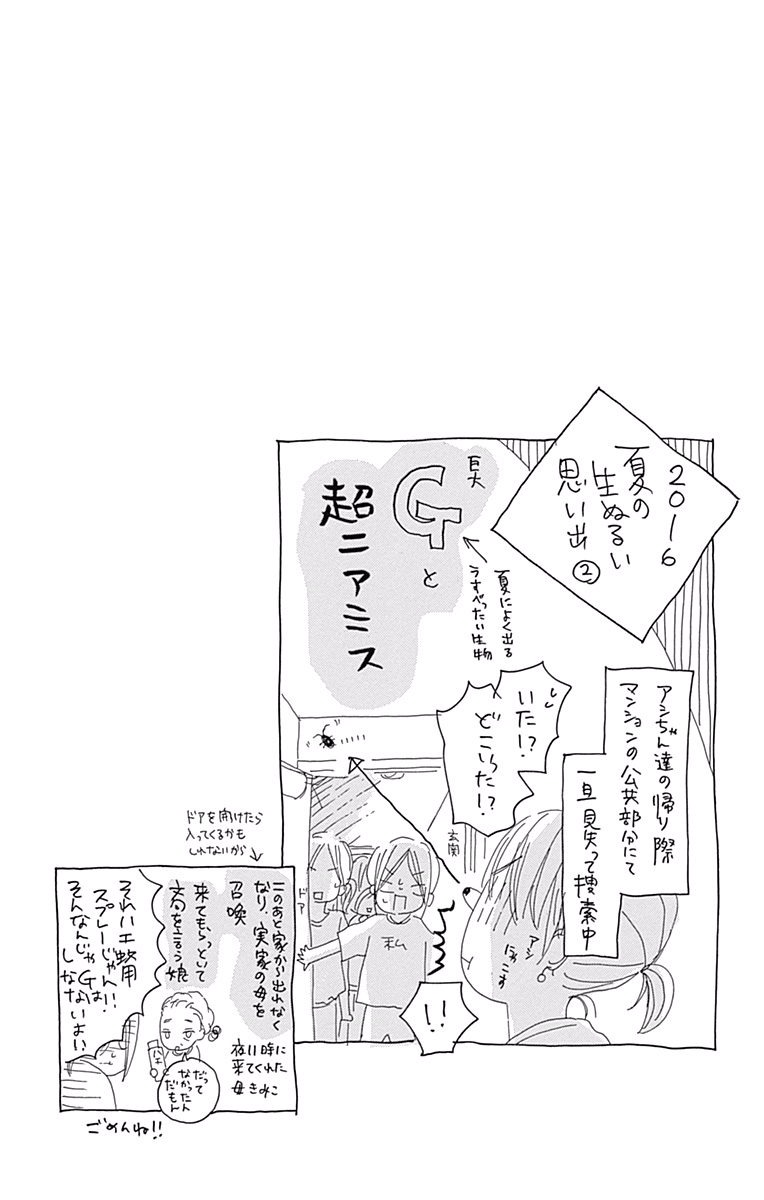 2016
夏の
生ぬるい
思い出
②
巨大
Gと
超ニアミス
夏によく出る
うすべったい生物
アシちゃん達の帰り際
マンションの公共部分にて
一旦見失って捜索中
いた!?
どこらた!?
玄関
ドア
私
アシ
にゃこす
!!
ドアを開けたら
入ってくるかも
しれないから
このあと家から出れなく
なり、実家の母を
召喚
来てもらっといて
文句を言う娘
それハエ蚊用
スプレーじゃん!!
そんなんじゃGは
しなないよ!!
ハエ
だって
なかったん
だもん
夜11時に
来てくれた
母きみこ
ごめんね!!